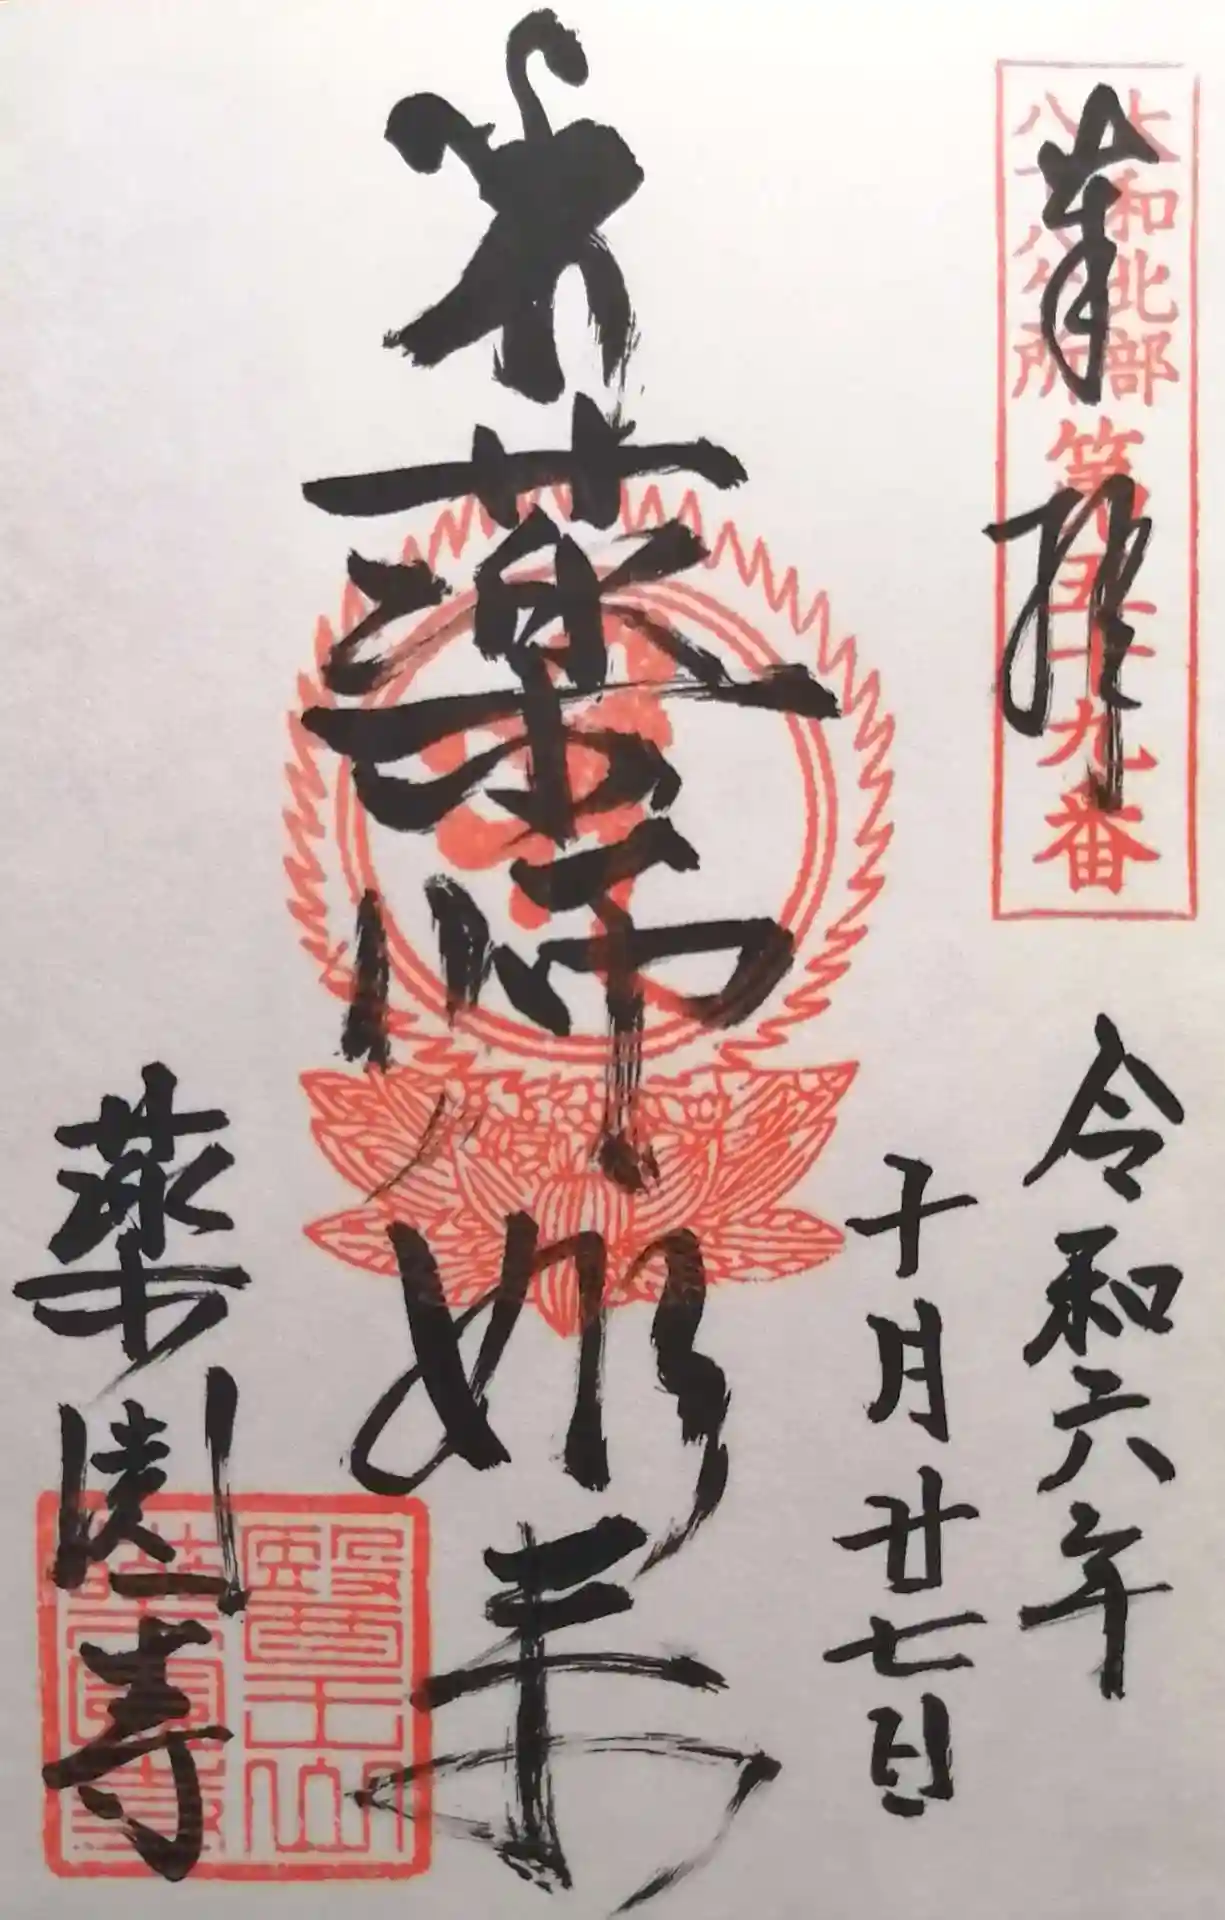 奉拝
大和北部
八十八ヶ所
第五十九番
令和六年
十月廿七日
薬師如来
薬園寺
醫王山
薬園寺